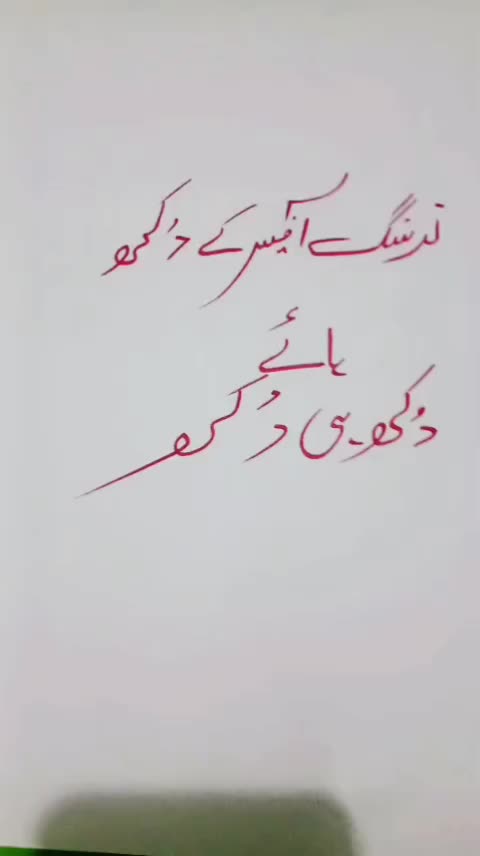 نرسنگ آفیس کے دُکھ
ہائے
دُکھ ہی دُکھ